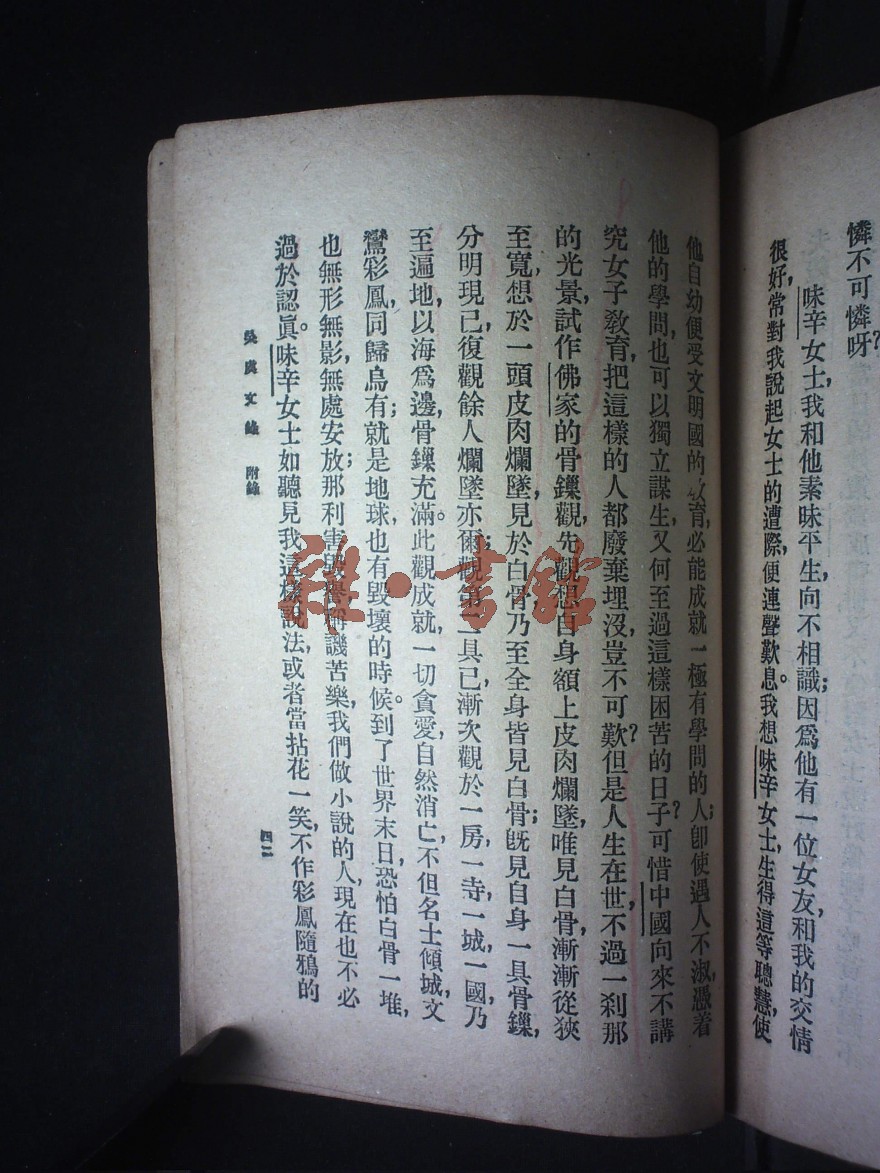 憐不可憐呀?
味辛女士,我和他素昧平生,向不相識;因爲他有一位女友,和我的交情
很好,常對我說起女士的遭際,便連聲歎息。我想味辛女士,生得這等聰慧,使
他自幼便受文明國的教育,必能成就一極有學問的人;卽使遇人不淑,憑着
他的學問,也可以獨立謀生,又何至過這樣困苦的日子?可惜中國向來不講
究女子教育,把這樣的人都廢棄埋沒,豈不可歎?但是人生在世,不過一剎那
的光景,試作佛家的骨鏁觀,先觀想自身額上皮肉爛墜,唯見白骨,漸漸從狹
至寬,想於一頭皮肉爛墜,見於白骨,乃至全身皆見白骨;旣見自身一具骨鏁,
分明現已,復觀餘人爛墜亦爾;觀第二具已,漸次觀於一房,一寺,一城,一國,乃
至遍地,以海爲邊,骨鏁充滿。此觀成就,一切貪愛,自然消亡,不但名士傾城,文
鸞彩鳳,同歸烏有;就是地球,也有毀壞的時候。到了世界末日,恐怕白骨一堆,
也無形無影,無處安放;那利害毀譽,稱譏苦樂,我們做小說的人,現在也不必
過於認眞。味辛女士如聽見我這樣說法,或者當拈花一笑,不作彩鳳隨鴉的
吳虞文錄 附錄
四二
雜·書館